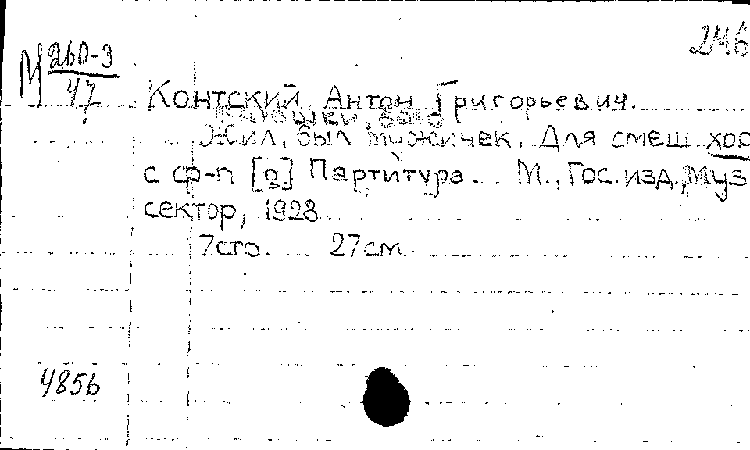 246
М 260-3
47
Контский, Антон Григорьевич.
Жил, был мужичек. Для смеш. хор
с ф-п [о] Партитура. М., Гос. изд. Муз
сектор, 1928
7стр. 27см
4856